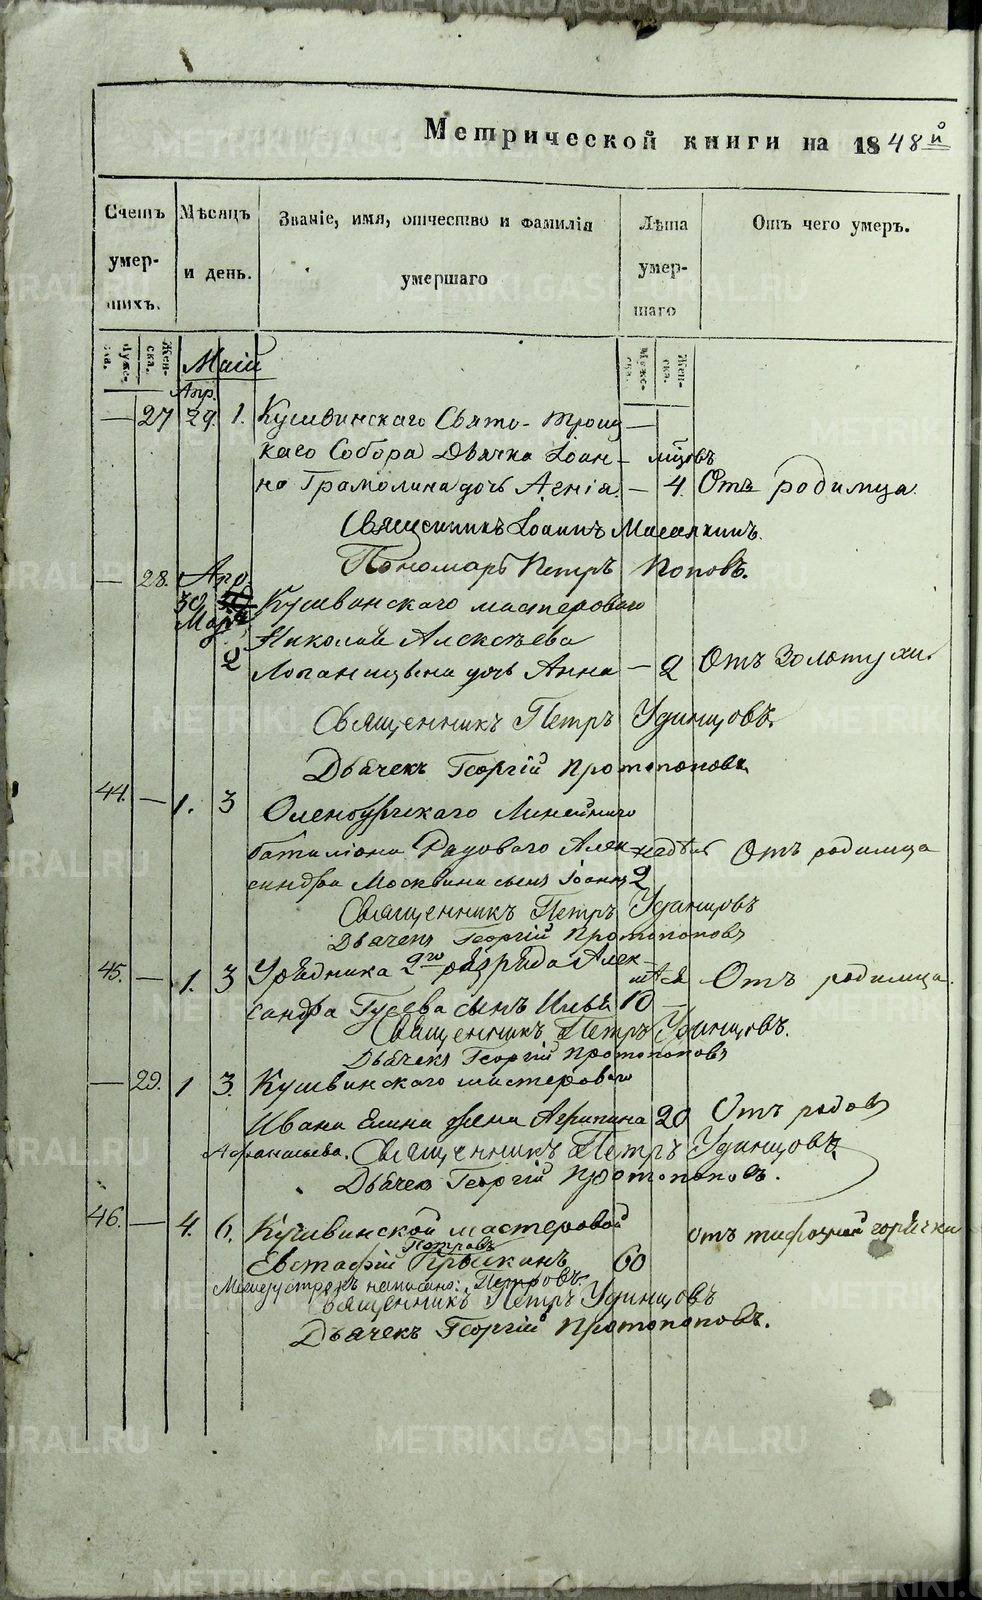 Метрической книги на 1848й
Счетъ умершихъ.
Мѣсяцъ и день.
Званіе, имя, отчество и фамилія умершаго
Лѣта умершаго
Отъ чего умеръ.
Мужеска. Женска. Маій Мужеска. Женска.
Апр.
— 27 29. 1. Кушвинскаго Свято-Троиц —
каго Собора Дьячка Іоан- мцовъ
на Грамолина дочь Агнія. — 4. Отъ родимца.
Священникъ Іоаннъ
Пономарь Петръ Поповъ.
— 28. Апр.
30 Кушвинскаго мастероваго
Николая Алексѣева
2 дочь Анна — 2 Отъ золотухи.
Священникъ Петръ Удинцовъ.
Дьячекъ Георгій Протопоповъ
44. — 1. 3 Оренбургскаго Линейнаго
баталіона Рядоваго Алек- недѣль Отъ родимца
сандра Москвина сынъ Іоаннъ 2
Священникъ Петръ Удинцовъ
Дьячекъ Георгій Протопоповъ
45. — 1. 3 Урядника 2го разряда Алек- Отъ родимца.
сандра Гусева сынъ Илья 10 —
Священникъ Петръ Удинцовъ.
Дьячекъ Георгій Протопоповъ
— 29. 1 3. Кушвинскаго мастероваго
Ивана Елина жена Агрипина 20 Отъ родовъ
Афанасьева. Священникъ Петръ Удинцовъ.
Дьячекъ Георгій Протопоповъ.
46. — 4. 6. Кушвинской мастеровой отъ тифозной горячки
Петровъ
Евстафій 60
Между строкъ написано: Петровъ.
Священникъ Петръ Удинцовъ
Дьячекъ Георгій Протопоповъ.
METRIKI.GASO-URAL.RU